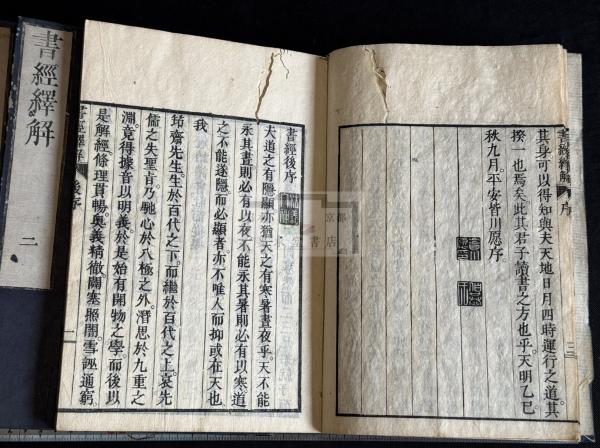 其身可以得知與夫天地日月四時運行之道。其
揆一也焉矣此其君子讀書之方也乎。天明乙巳
秋九月。平安皆川愿序
書經繹解 序 二
書經後序
夫道之有隱顯亦猶天之有寒暑晝夜乎。天不能
永其晝則必有以夜不能永其暑則必有以寒。道
之不能遂隱而必顯者亦不唯人而抑或在天也
我
齋先生。生於百代之下。而繼於百代之上。哀先
儒之失聖旨。乃馳心於八極之外。潛思於九重之
淵。竟得據音以明義。於是始有開物之學。而後以
是解經條理貫暢。奧義精徹。關塞照闇。雪誣通窮。
書經繹解 後序 一
書經繹解 二
京都
書店